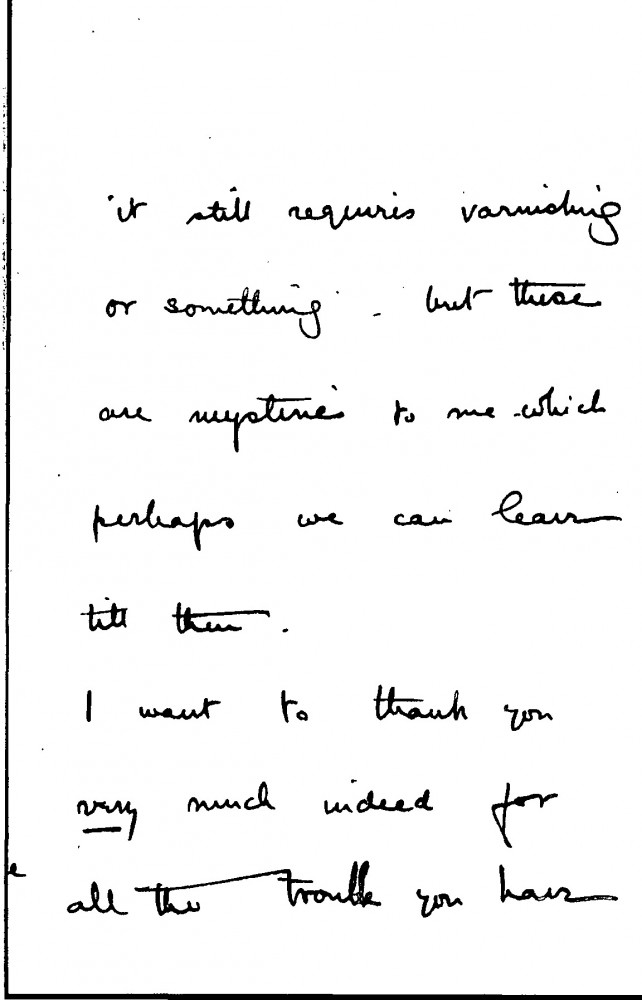 it still requires varnishing
or something - but these
are mysteries to me which
perhaps we can leave
till then.
I want to thank you
very much indeed for
all the trouble you have